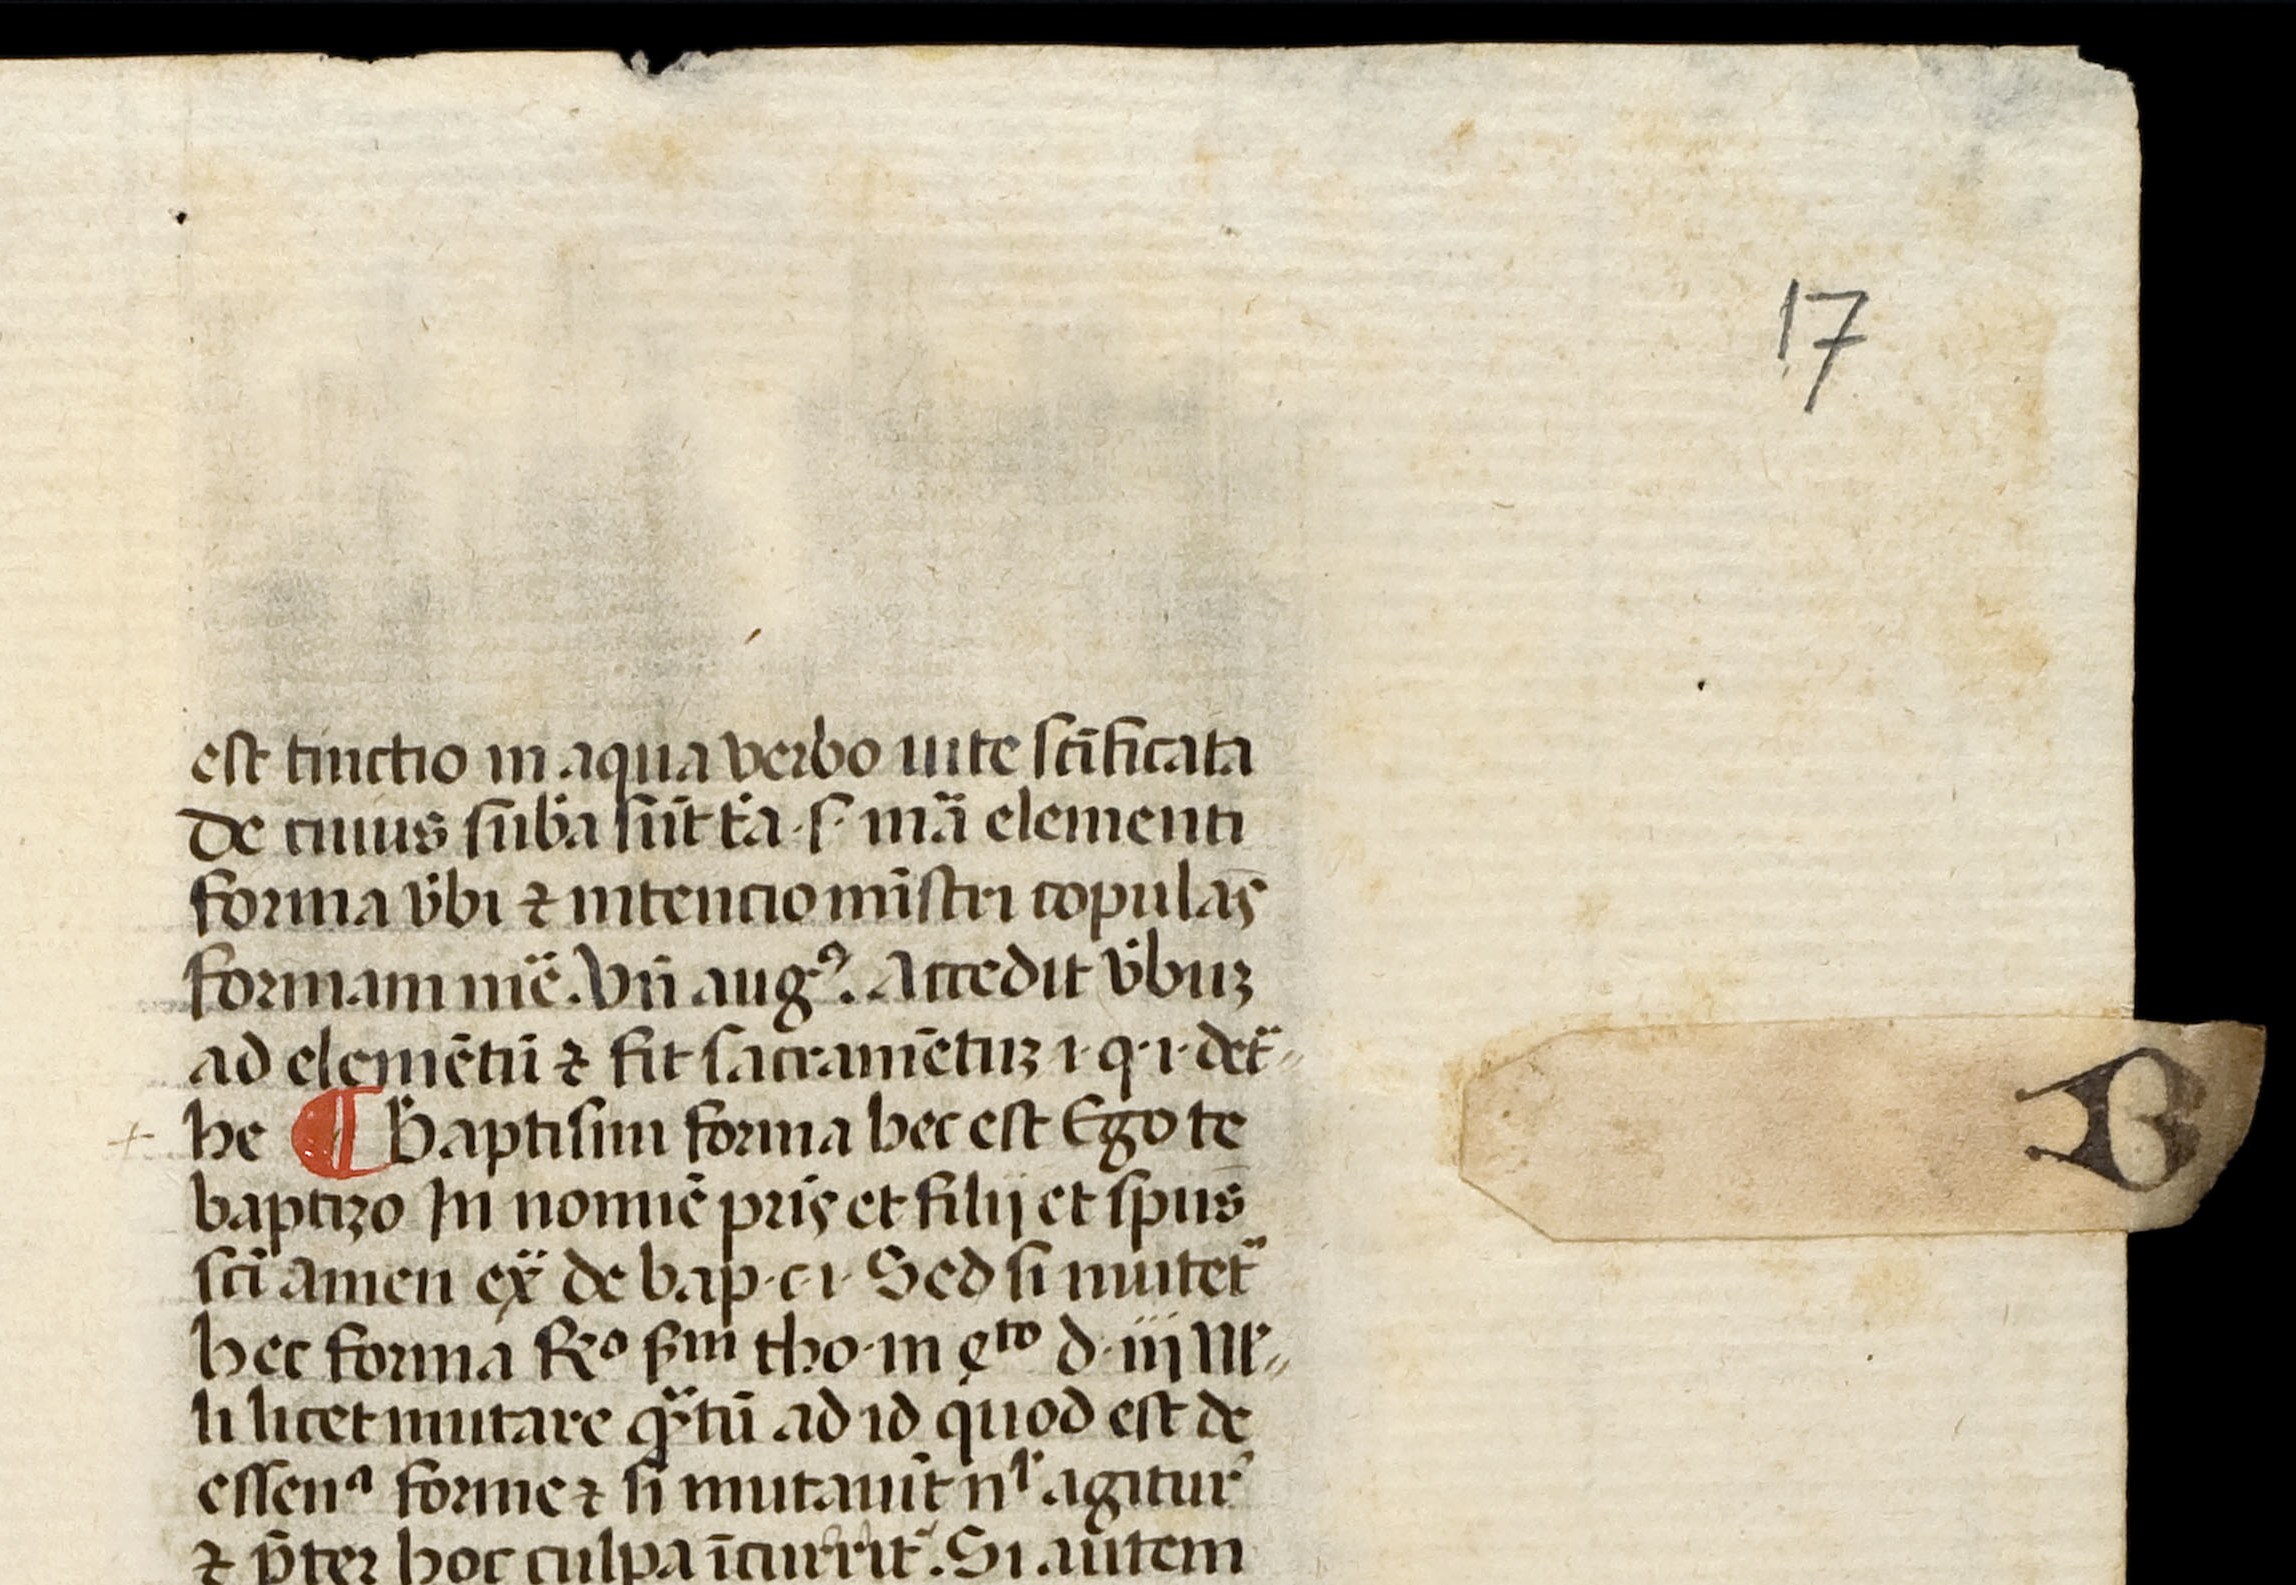 17
est tinctio in aqua verbo uite scĩficata
de cuius suba sũt tia .s. mã elementi
forma vbi ⁊ intencio mĩstri copulãs
formam mẽ. Vñ augꝰ. Accedit vbuz
ad elemẽtũ ⁊ fit sacramẽtuz .i. q. i. det̃
B
he ¶ Baptismi forma hec est Ego te
baptizo In nomĩe pris et filij et spus
scĩ amen ex̃ de bap. c. i. Sed si mutet̃
hec forma Rº sm tho. in qto d. iij Nł
li licet mutare q̃tũ ad id quod est de
essenª forme ⁊ si mutauit nl agitur
⁊ p̃ter hoc culpa ĩcurrit. Si autem